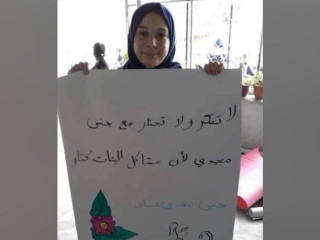 لا تفكر ولا تحتار مع حنى
مجدي لأن مشاكل البنات كتار
حنى مجدي